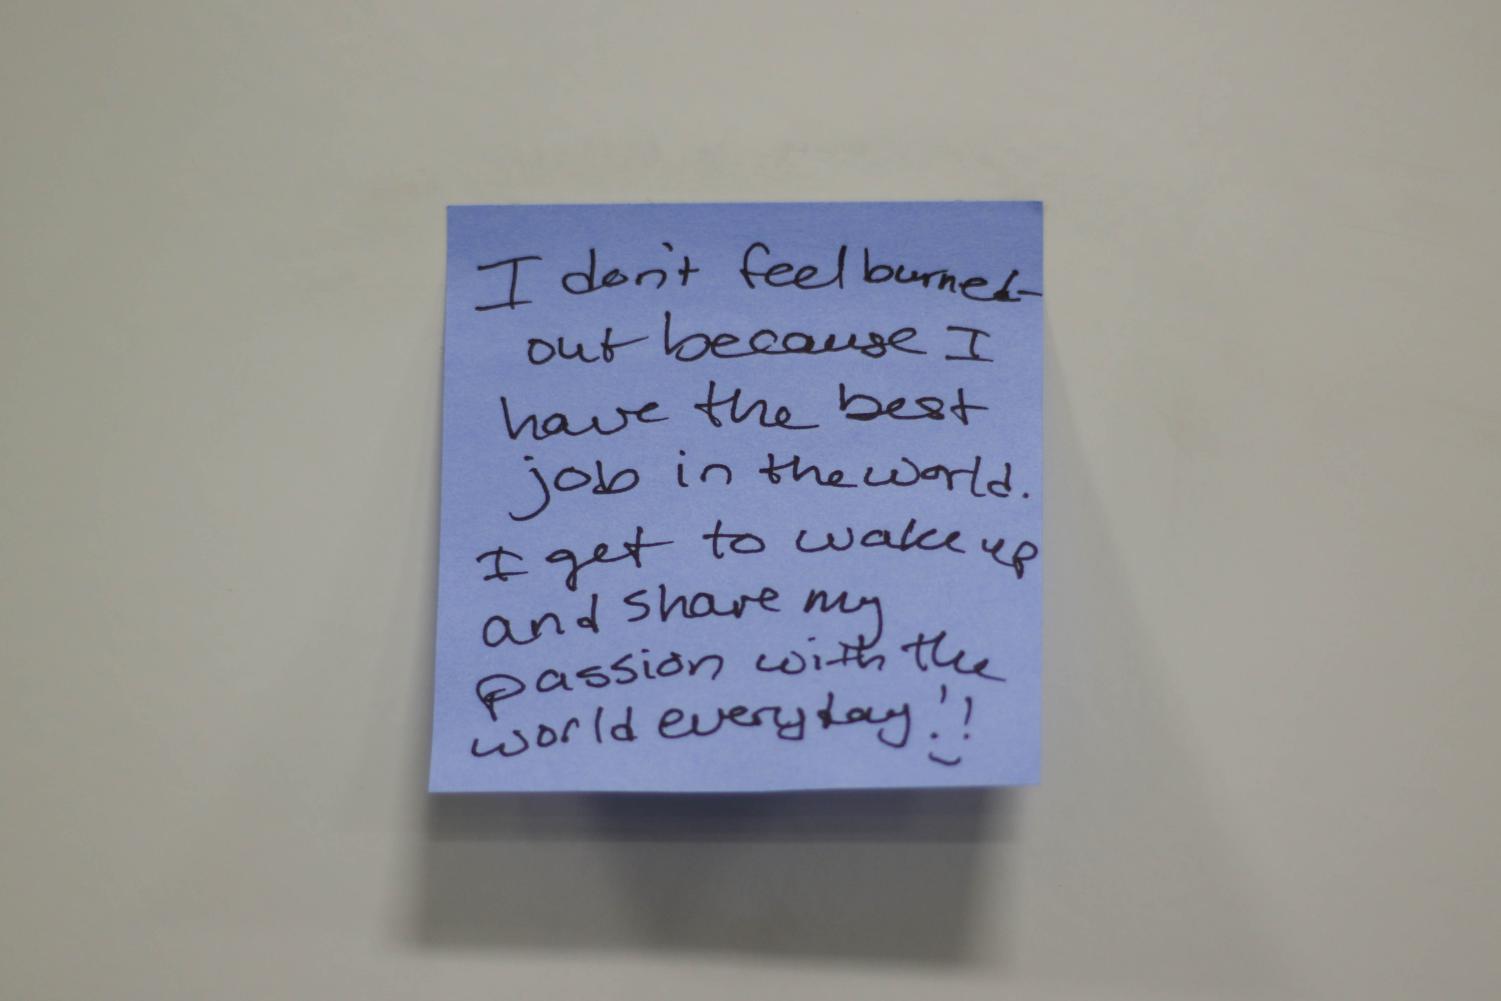 I don't feel burned
out because I
have the best
job in the world.
I get to wake up
and share my
passion with the
world everyday!!